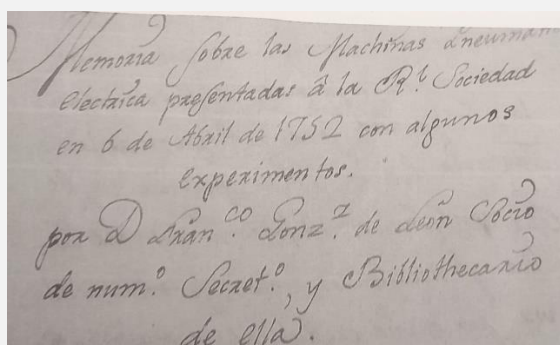 Memoria sobre las Machinas Pneuma
electrica presentadas â la R.l Sociedad
en 6 de Abril de 1752 con algunos
experimentos.
por D Fran.co Gonz.z de Leon Socio
de num.o Secret.o, y Bibliothecario
de ella.